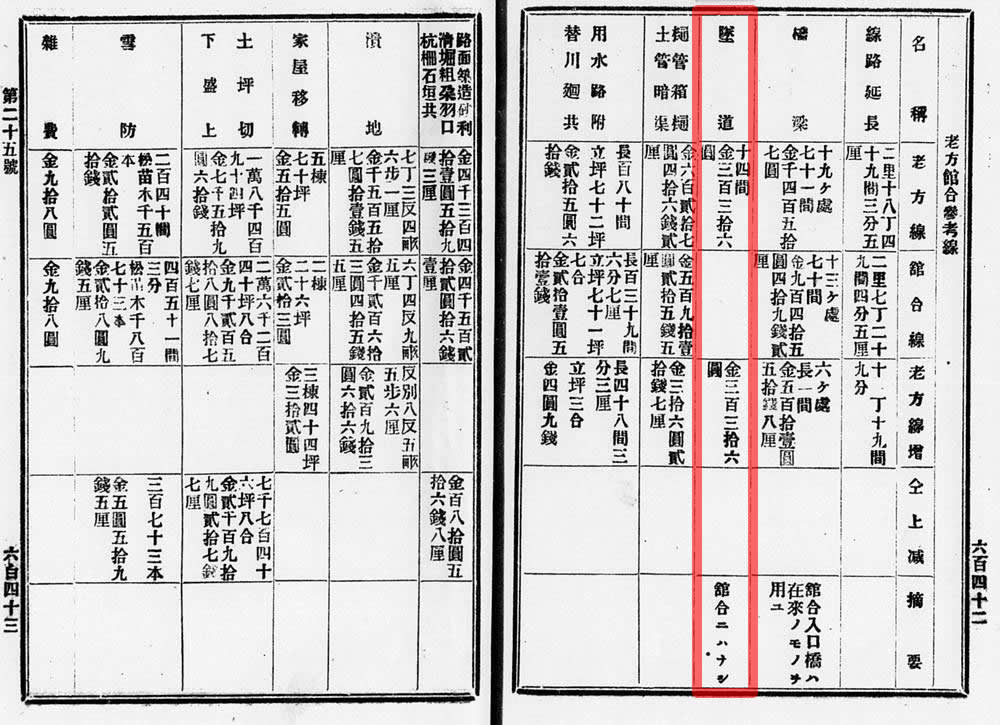 老方館合參考線
名稱
老方線
館合線
老方線增
仝上減
摘要
線路延長
二里十八丁四
十九間三分五
厘
二里七丁二十
九間四分五厘
十丁十九間
九分
橋梁
十九ヶ處
七十一間
金千四百五拾
七圓
十三ヶ處
七十間
金九百四拾五
圓四拾九錢貳
厘
六ヶ處
長一間
金五百拾壹圓
五拾錢八厘
館合入口橋ハ
在來ノモノヲ
用ユ
墜道
十四間
金三百三拾六
圓
金三百三拾六
圓
館合ニハナシ
樋管箱樋
土管暗渠
金六百貳拾七
圓四拾六錢貳
厘
金五百九拾壹
圓貳拾五錢五
厘
金三拾六圓貳
拾錢七厘
用水路附
替川廻共
長百八十間
立坪七十二坪
金貳拾五圓六
拾錢
長百三十九間
六分七厘
立坪七十一坪
七合
金貳拾壹圓五
拾壹錢
長四十八間三
分三厘
立坪三合
金四圓九錢
六百四十二
路面築造砂利
溝堀粗朶羽口
杭柵石垣共
金四千三百四
拾壹圓五拾九
錢三厘
金四千五百貳
拾貳圓拾六錢
壹厘
金百八拾圓五
拾六錢八厘
潰地
七丁三反四畝
六步一厘
金千五百五拾
七圓拾壹錢五
厘
六丁四反九畝
五厘
金千貳百六拾
三圓四拾五錢
五厘
反別八反五畝
五步六厘
金貳百九拾三
圓六拾六錢
家屋移轉
五棟
七十坪
金五拾五圓
二棟
二十六坪
金貳拾三圓
三棟四十四坪
金三拾貳圓
土坪切
下盛上
一萬八千四百
九十四坪
金七千五拾九
圓六拾錢
二萬六千二百
四十坪八合
金九千貳百五
拾八圓八拾七
錢七厘
七千七百四十
六坪八合
金貳千百九拾
九圓貳拾七錢
七厘
雪防
二百四十間
松苗木千五百
本
金貳拾貳圓五
拾錢
四百五十一間
三分
松苗木千八百
七十三本
金貳拾八圓九
錢五厘
三百七十三本
金五圓五拾九
錢五厘
雜費
金九拾八圓
金九拾八圓
第二十五號
六百四十三